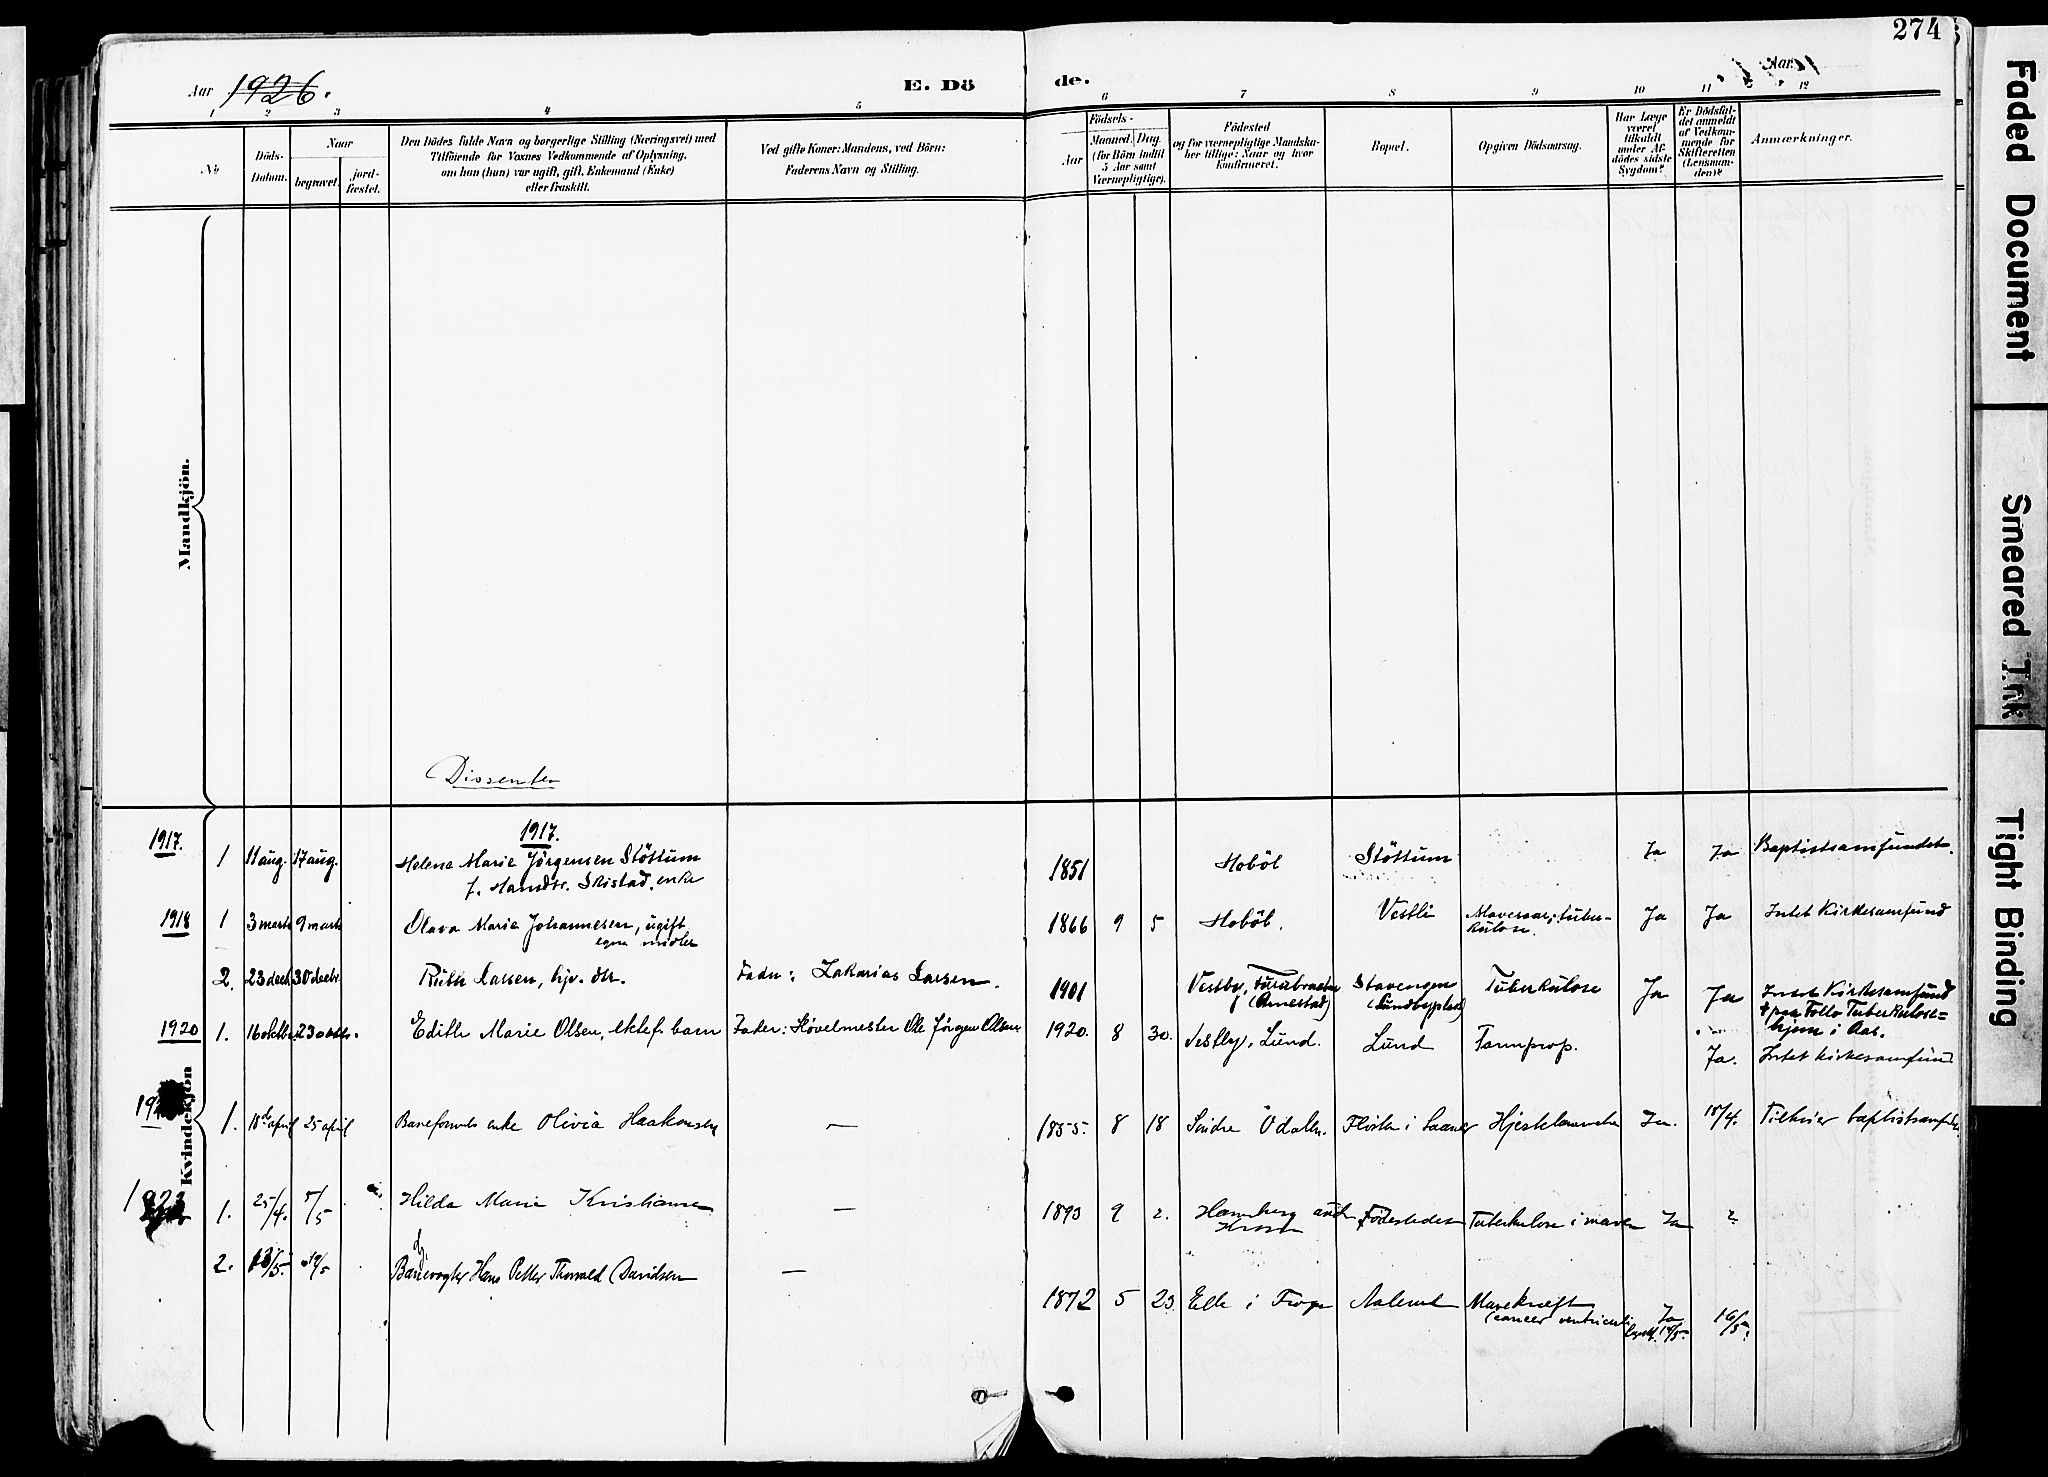 274
Aar 1926.
E. Döde.
Aar
1 2 3 4 5 6 7 8 9 10 11 12
No
Döds-
Datum.
Naar
begravet.
jord-
fæstet.
Den Dödes fulde Navn og borgerlige Stilling (Næringsvei) med
Tilföiende for Voxnes Vedkommende af Oplysning,
om han (hun) var ugift, gift, Enkemand (Enke)
eller fraskilt.
Ved gifte Koner: Mandens, ved Börn:
Faderens Navn og Stilling.
Födsels-
Aar
Maaned.
Dag.
(for Börn indtil
5 Aar samt
Værnepligtige).
Födested
og for værnepligtige Mandska-
ber tillige: Naar og hvor
konfirmeret.
Bopæl.
Opgiven Dödsaarsag.
Har Læge
været
tilkaldt
under Af-
dödes sidste
Sygdom?
Er Dödsfal-
det anmeldt
af Vedkom-
mende for
Skifteretten
(Lensman-
den)?
Anmærkninger.
Mandkjön.
Dissenter
Kvindekjön
1917.
1917.
1 11 aug. 17 aug. Helena Marie Jörgensen Stöttum 1851 Hoböl Stöttum Ja Ja Baptistsamfundet.
f. Handsr. Skistad. enke
1918 1 3 marts 9 marts Olava Marie Johannesen, ugift 1866 9 5 Hoböl. Vestli Mavesaar; tuber-
kulose. Ja Ja Intet Kirkesamfund
egne midler
2. 23 decb 30 decbr Ruth Larsen, hjv. dtr. Fader: Zakarias Larsen. 1901 Vestby, Stavengen Tuberkulose Ja Ja Intet Kirkesamfund
(Sundbyplads)
† paa Follo Tuberkulose=
hjem i Aas.
1920 1. 16 oktbr. 23 oktbr. Edith Marie Olsen, ektef. barn Fader: Hövelmester Ole Jörgen Olsen 1920. 8 30. Vestby, Lund. Lund Ja. Intet kirkesamfund
1. 18de april 25 april enke Olivia Haakonsen — 1855. 8 18 Söndre Odalen. i Saaner Ja. 18/4. Tilhører baptistsamfdn.
1. 25/4. 5/5 Hilda Marie Kristiansen — 1893 9 2. Födestedet Tuberkulose i maven Ja 2
2. 13/5. 19/5 Banevogter Hans Petter Thorvald Davidsen — 1872 5 23. Elle i Frogn Mavekræft
(cancer ventriculi) Ja 16/5.
Faded Document
Smeared Ink
Tight Binding